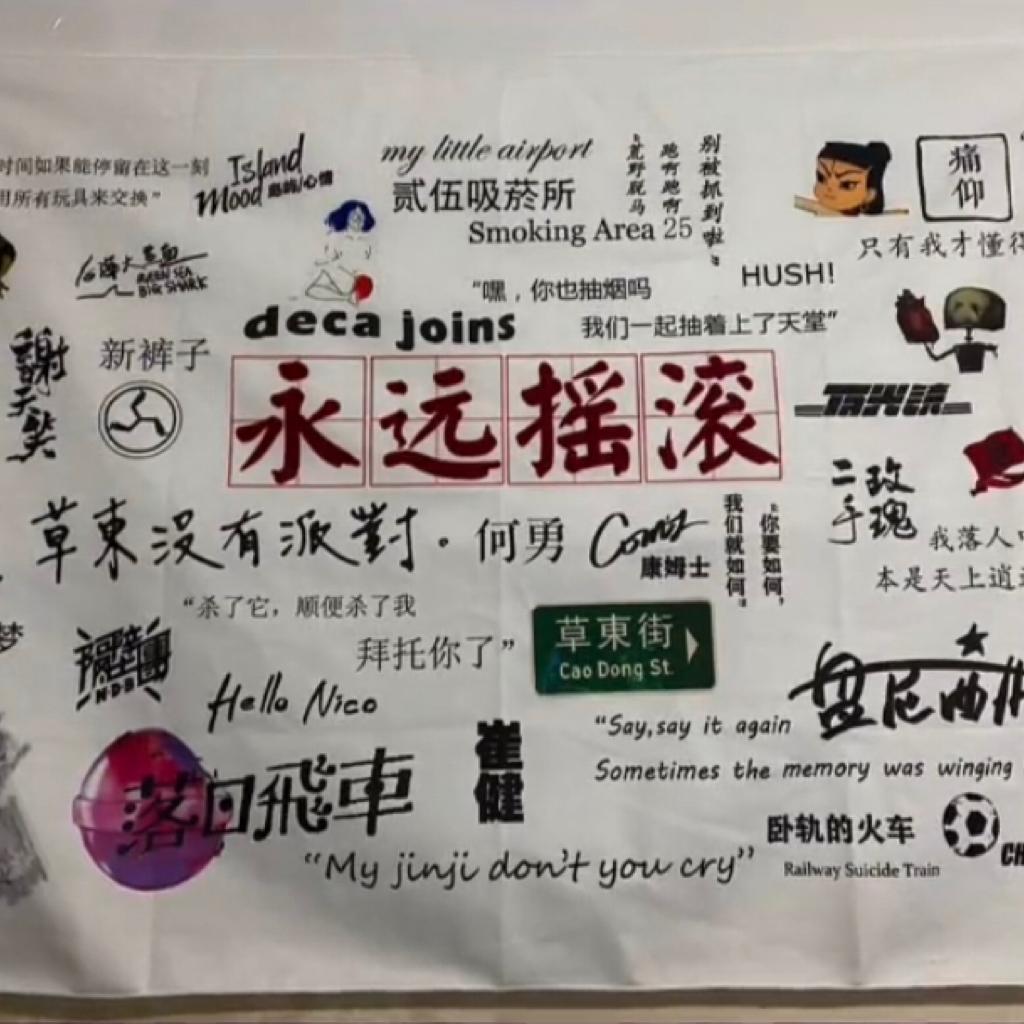 时间如果能停留在这一刻
用所有玩具来交换”
Island
Mood 岛屿/心情
my little airport
贰伍吸菸所
Smoking Area 25
“荒野脱马
跑啊跑啊
别被抓到啦”
痛仰
只有我才懂得
HUSH!
BIG SHARK
“嘿，你也抽烟吗
我们一起抽着上了天堂”
deca joins
谢天笑
新裤子
永远摇滚
二手玫瑰
我落人
本是天上逍
草東没有派對。
何勇
康姆士
“你要如何，
我们就如何”
“杀了它，顺便杀了我
拜托你了”
草東街
Cao Dong St.
梦
Hello Nico
盘尼西林
“Say,say it again
Sometimes the memory was winging
落日飛車
崔健
“My jinji don't you cry”
卧轨的火车
Railway Suicide Train
CH